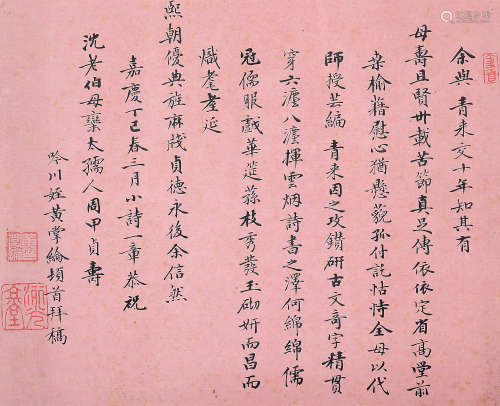 余與青来交十年知其有
母壽且賢廿載苦節真足傳依依定省髙堂前
桑榆藉慰心猶懸藐孤付託怙恃全母以代
師授芸編青来因之攻鑚研古文竒字精貫
穿六瀍八瀍揮雲烟詩書之澤何綿綿儒
冠儒服戯華筵蓀枝秀發玉砌妍而昌而
熾耄耋延
熙朝優典旌麻賤貞德永後余信然
嘉慶丁巳春三月小詩一章恭祝
沈老伯母欒太孺人周甲貞壽
吟川姪黄掌綸頓首拜稿